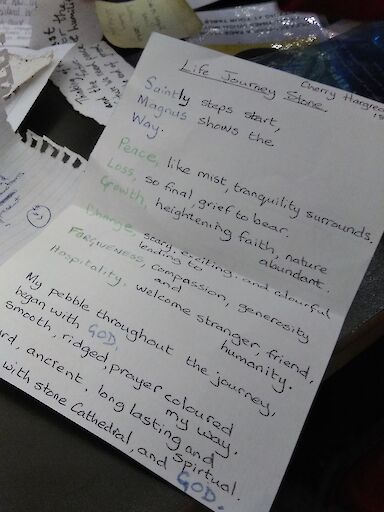 Life Journey Stone.
Cherry
Saintly steps start,
Magnus shows the
Way.
Peace, like mist, tranquility surrounds.
Loss, so final, grief to bear.
Growth, heightening faith, nature
abundant.
Change, scary, exciting, and colourful
leading to
Forgiveness, compassion, generosity
and
Hospitality, welcome stranger, friend,
humanity.
My pebble throughout the journey,
began with GOD,
smooth, ridged, prayer coloured
my way.
ancient, long lasting and
with stone Cathedral, and Spirtual.
GOD.